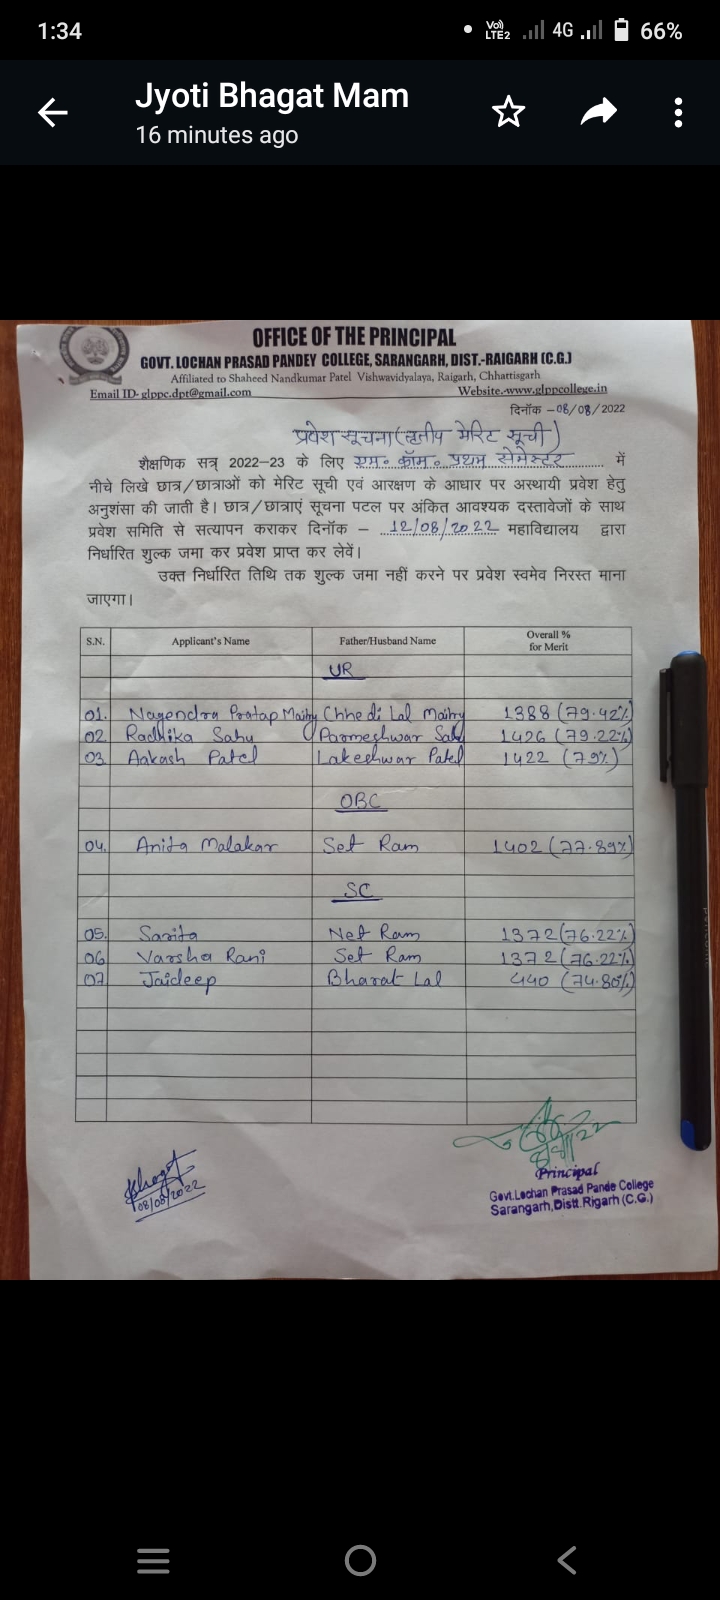 1:34 Vo)) LTE2 4G 66%
Jyoti Bhagat Mam
16 minutes ago
OFFICE OF THE PRINCIPAL
GOVT. LOCHAN PRASAD PANDEY COLLEGE, SARANGARH, DIST.-RAIGARH (C.G.)
Affiliated to Shaheed Nandkumar Patel Vishwavidyalaya, Raigarh, Chhattisgarh
Email ID- glppc.dpt@gmail.com Website.-www.glppcollege.in
दिनॉक –08/08/2022
प्रवेश सूचना (तृतीय मेरिट सूची)
शैक्षणिक सत्र् 2022–23 के लिए एम॰ कॉम॰ प्रथम सेमेस्टर में
नीचे लिखे छात्र/छात्राओं को मेरिट सूची एवं आरक्षण के आधार पर अस्थायी प्रवेश हेतु
अनुशंसा की जाती है। छात्र/छात्राएं सूचना पटल पर अंकित आवश्यक दस्तावेजों के साथ
प्रवेश समिति से सत्यापन कराकर दिनॉक – 12/08/2022 महाविद्यालय द्वारा
निर्धारित शुल्क जमा कर प्रवेश प्राप्त कर लेवें।
उक्त निर्धारित तिथि तक शुल्क जमा नहीं करने पर प्रवेश स्वमेव निरस्त माना
जाएगा।
S.N. Applicant's Name Father/Husband Name Overall % for Merit
UR
01. Nagendra Pratap Maitry Chhedi Lal Maitry 1388 (79.42%)
02 Radhika Sahu Parmeshwar Sahu 1426 (79.22%)
03 Aakash Patel Lakeshwar Patel 1422 (79%)
OBC
04. Anita Malakar Set Ram 1402 (77.89%)
SC
05. Sarita Net Ram 1372 (76.22%)
06 Varsha Rani Set Ram 1372 (76.22%)
07 Jaideep Bharat Lal 440 (74.80%)
Bhagat
08/08/2022
Principal
Govt.Lochan Prasad Pande College
Sarangarh,Distt.Rigarh (C.G.)